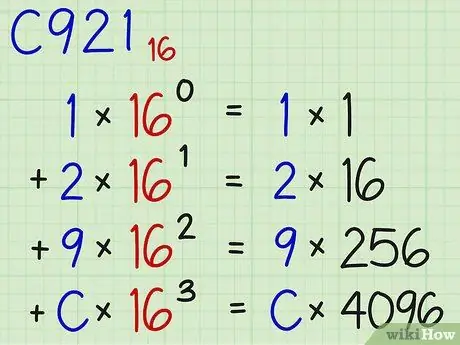 C921₁₆
1 × 16⁰ = 1 × 1
+ 2 × 16¹ = 2 × 16
+ 9 × 16² = 9 × 256
+ C × 16³ = C × 4096
wikiHow